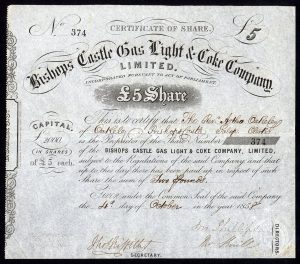 CERTIFICATE OF SHARE.
No. 374
£5
Bishops Castle Gas Light & Coke Company,
LIMITED.
INCORPORATED PURSUANT TO ACT OF PARLIAMENT.
£5 Share
CAPITAL
£2000
(IN SHARES)
OF £5 each.
This is to certify that The Rev Arthur Oakeley
of Oakeley Bishops Castle
is the Proprietor of the Share Number 374
of the BISHOPS CASTLE GAS LIGHT & COKE COMPANY, LIMITED,
subject to the Regulations of the said Company and that
up to this day there has been paid up in respect of such
Share the sum of Five Pounds
Given under the Common Seal of the said Company
the day of October in the year 185
SECRETARY.
DIRECTORS